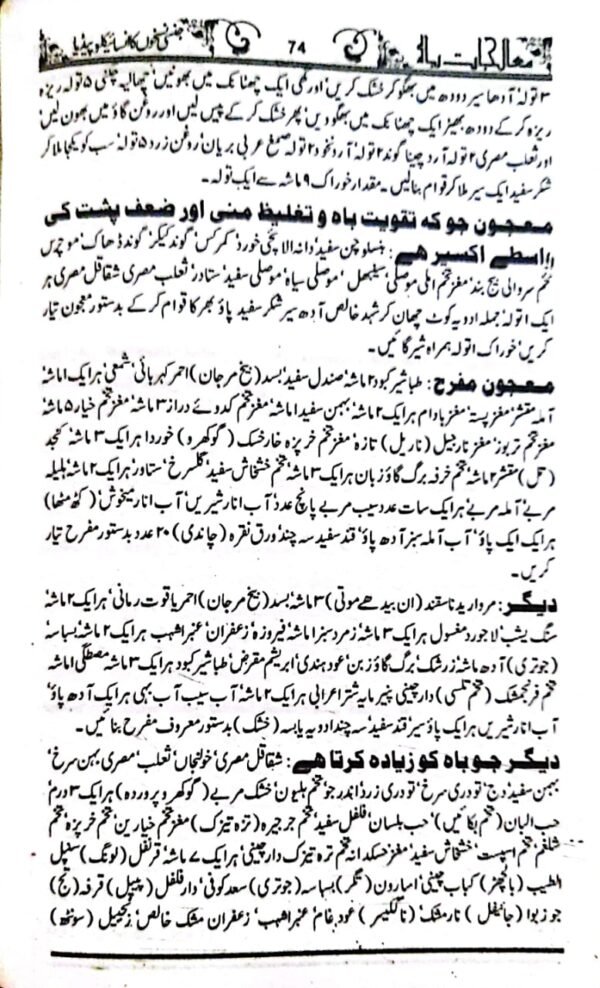 معالجات باہ 74 جنسی نسخوں کا انسائیکلوپیڈیا
۳ تولہ' آدھا سیر دودھ میں بھگو کر خشک کریں' اور گھی ایک چھٹانک میں بھونیں' چھالیہ چکنی ۵ تولہ ریزہ
ریزہ کر کے دودھ بھیڑ ایک چھٹانک میں بھگو دیں' پھر خشک کر کے پیس لیں اور روغن گاؤ میں بھون لیں'
اور ثعلب مصری ۲ تولہ' آرد چینا گوند ۲ تولہ' آرد نخود ۲ تولہ' صمغ عربی بریاں' روغن زرد ۵ تولہ' سب کو یکجا ملا کر
شکر سفید ایک سیر ملا کر قوام بنالیں۔ مقدار خوراک ۹ ماشہ سے ایک تولہ۔
معجون جو کہ تقویت باہ و تغلیظ منی اور ضعف پشت کی
واسطے اکسیر ھے: بنسلوچن سفید' دانہ الائچی خورد' کمرکس' گوند کیکر' گوند ڈھاک' موچرس'
تخم سروالی' بیج بند' مغز تخم املی' موصلی سینبھل' موصلی سیاہ' موصلی سفید' ستاور' ثعلب مصری' شقاقل مصری ہر
ایک ا تولہ' جملہ ادویہ کوٹ چھان کر شہد خالص آدھ سیر' شکر سفید پاؤ بھر کا قوام کر کے بدستور معجون تیار
کریں' خوراک ا تولہ ہمراہ شیر گائیں۔
معجون مفرح: طباشیر کبود ۲ ماشہ' صندل سفید' بسد (بیخ مرجان) احمر' کہربائی شمعی' ہر ایک ا ماشہ'
آملہ مقشر' مغز پستہ' مغز بادام ہر ایک ۲ ماشہ' بہمن سفید ا ماشہ' مغز تخم کدوئے دراز ۳ ماشہ' مغز تخم خیار ۵ ماشہ'
مغز تخم تربوز' مغز نارجیل (ناریل) تازہ' مغز تخم خرپزہ' خارخسک (گوکھرو) خورد' ہر ایک ۳ ماشہ' کنجد
(تل) مقشر ۲ ماشہ' تخم خرفہ' برگ گاؤ زبان ہر ایک ۳ ماشہ' تخم خشخاش سفید' گلسرخ' ستاور' ہر ایک ۲ ماشہ' ہلیلہ
مربے' آملہ مربے' ہر ایک سات عدد' سیب مربے پانچ عدد' آب انار شیریں' آب انار میخوش' (کھٹ مٹھا)
ہر ایک ایک پاؤ' آب آملہ سبز آدھ پاؤ' قند سفید سہ چند' ورق نقرہ (چاندی) ۲۰ عدد' بدستور مفرح تیار
کریں۔
دیگر: مروارید ناسفتہ (ان بیدھے موتی) ۳ ماشہ' بسد (بیخ مرجان) احمر' یاقوت رمانی' ہر ایک ۲ ماشہ'
سنگ یشب' لاجورد مغسول ہر ایک ۳ ماشہ' زمرد سبز ا ماشہ' فیروزہ' زعفران' عنبر اشہب ہر ایک ۲ ماشہ' بسباسہ
(جوتری) آدھ ماشہ' زرشک' برگ گاؤ زبن' عود ہندی' ابریشم مقرض' طباشیر کبود ہر ایک ۳ ماشہ' مصطگی ا ماشہ'
تخم فرنجمشک (تخم تلسی) دارچینی' پنیر مایہ شتر اعرابی ہر ایک ۲ ماشہ' آب سیب' آب بہی ہر ایک آدھ پاؤ'
آب انار شیریں ہر ایک پاؤ سیر' قند سفید سہ چند ادویہ یابسہ (خشک) بدستور معروف مفرح بنائیں۔
دیگر جو باہ کو زیادہ کرتا ھے: شقاقل مصری' خولنجاں' ثعلب مصری' بہمن سرخ'
بہمن سفید' وج' تودری سرخ' تودری زرد' اندر جو' تخم ہلیون' خشک مربے (گوکھرو پروردہ) ہر ایک ۳ درم'
حب البان (تخم بکائیں) حب بلسان' فلفل سفید' تخم جرجیرہ (ترہ تیزک) مغز تخم خیارین' تخم خرپزہ' تخم
شلغم' تخم اسپست' خشخاش سفید' تخم ترہ تیزک' دارچینی' ہر ایک ۷ ماشہ' قرنفل (لونگ) سنبل
الطیب (بالچھڑ) کباب چینی' اسارون (تگر) بسباسہ (جوتری) سعد کوفی' دار فلفل (پیپل) قرفہ (تج)
جوزبوا (جائیفل) نارمشک (ناگکیسر) عود خام' عنبر اشہب' زعفران' مشک خالص' زنجبیل (سونٹھ)